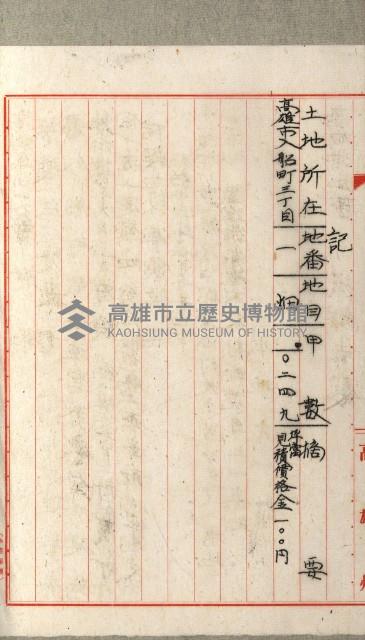 記
土地所在 地番 地目 甲數 摘要
高雄市入船町三丁目 一 畑 〇二四九 坪當見積價格金一〇〇円
高雄州
高雄市立歷史博物館
KAOHSIUNG MUSEUM OF HISTORY